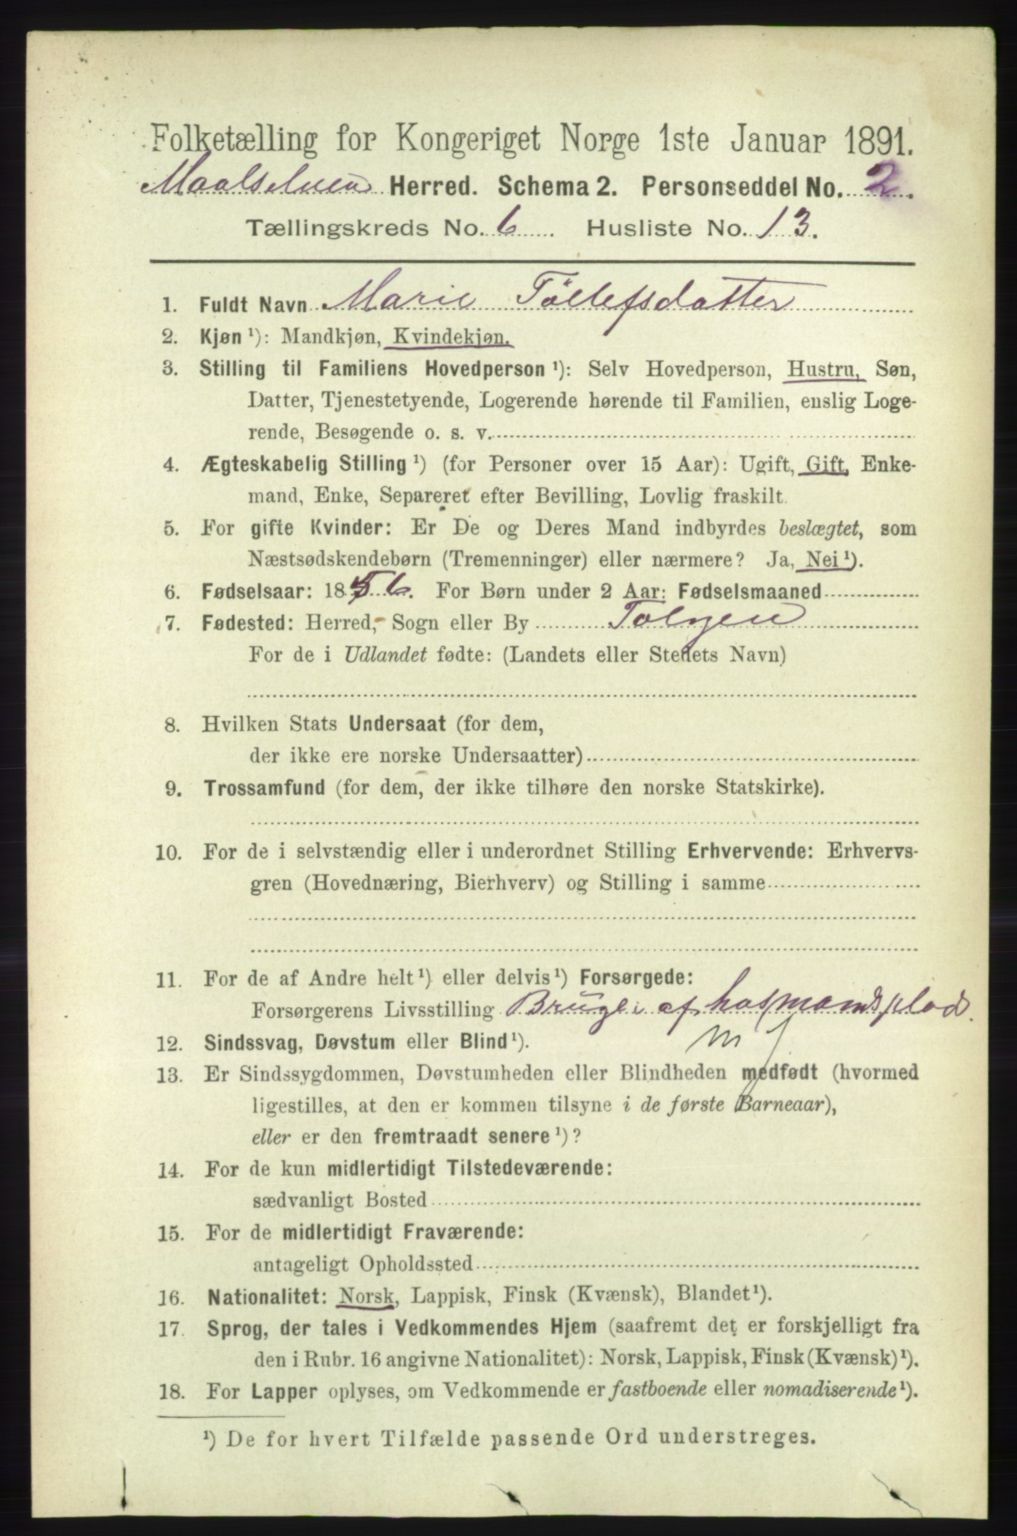 Folketælling for Kongeriget Norge 1ste Januar 1891.
Maalselven Herred. Schema 2. Personseddel No. 2.
Tællingskreds No. 6. Husliste No. 13.
1. Fuldt Navn Marie Töllefsdatter
2. Kjøn ¹): Mandkjøn, Kvindekjøn.
3. Stilling til Familiens Hovedperson ¹): Selv Hovedperson, Hustru, Søn,
Datter, Tjenestetyende, Logerende hørende til Familien, enslig Loge-
rende, Besøgende o. s. v.
4. Ægteskabelig Stilling ¹) (for Personer over 15 Aar): Ugift, Gift, Enke-
mand, Enke, Separeret efter Bevilling, Lovlig fraskilt.
5. For gifte Kvinder: Er De og Deres Mand indbyrdes beslægtet, som
Næstsødskendebørn (Tremenninger) eller nærmere? Ja, Nei ¹).
6. Fødselsaar: 1856. For Børn under 2 Aar: Fødselsmaaned
7. Fødested: Herred, Sogn eller By Tolgen
For de i Udlandet fødte: (Landets eller Stedets Navn)
8. Hvilken Stats Undersaat (for dem,
der ikke ere norske Undersaatter)
9. Trossamfund (for dem, der ikke tilhøre den norske Statskirke).
10. For de i selvstændig eller i underordnet Stilling Erhvervende: Erhvervs-
gren (Hovednæring, Bierhverv) og Stilling i samme
11. For de af Andre helt ¹) eller delvis ¹) Forsørgede:
Forsørgerens Livsstilling Bruger af husmandsplads.
m j
12. Sindssvag, Døvstum eller Blind ¹).
13. Er Sindssygdommen, Døvstumheden eller Blindheden medfødt (hvormed
ligestilles, at den er kommen tilsyne i de første Barneaar),
eller er den fremtraadt senere ¹)?
14. For de kun midlertidigt Tilstedeværende:
sædvanligt Bosted
15. For de midlertidigt Fraværende:
antageligt Opholdssted
16. Nationalitet: Norsk, Lappisk, Finsk (Kvænsk), Blandet ¹).
17. Sprog, der tales i Vedkommendes Hjem (saafremt det er forskjelligt fra
den i Rubr. 16 angivne Nationalitet): Norsk, Lappisk, Finsk (Kvænsk) ¹).
18. For Lapper oplyses, om Vedkommende er fastboende eller nomadiserende ¹).
¹) De for hvert Tilfælde passende Ord understreges.